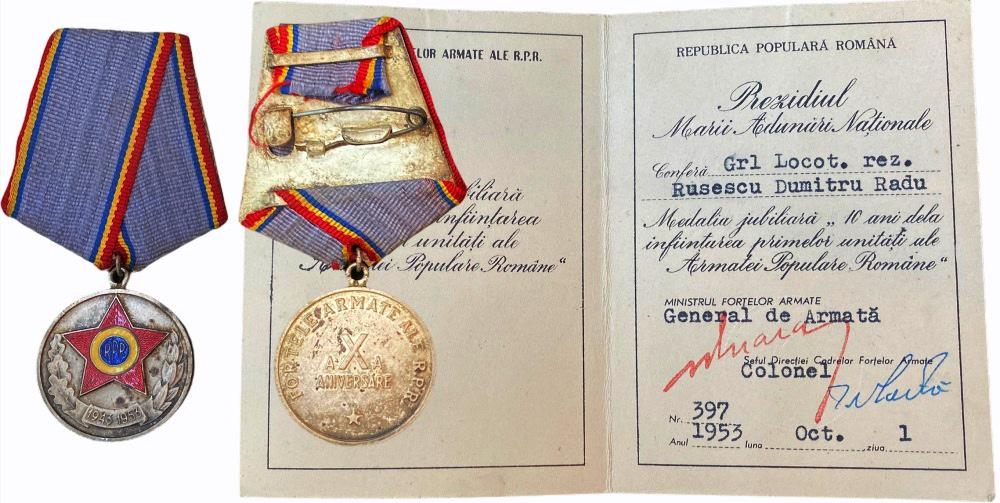 RPR
1943-1953
ELOR ARMATE ALE R.P.R.
biliară
nființarea
unități ale
Armatei Populare Române"
FORȚELE ARMATE ALE RPR
X
A A
ANIVERSARE
REPUBLICA POPULARĂ ROMÂNĂ
Prezidiul
Marii Adunări Naționale
Conferă Grl Locot. rez.
Rusescu Dumitru Radu
Medalia jubiliară „10 ani dela
înființarea primelor unități ale
Armatei Populare Române"
MINISTRUL FORȚELOR ARMATE
General de Armată
Șeful Direcției Cadrelor Forțelor Armate
Colonel
Nr. 397
Anul 1953 luna Oct. ziua 1